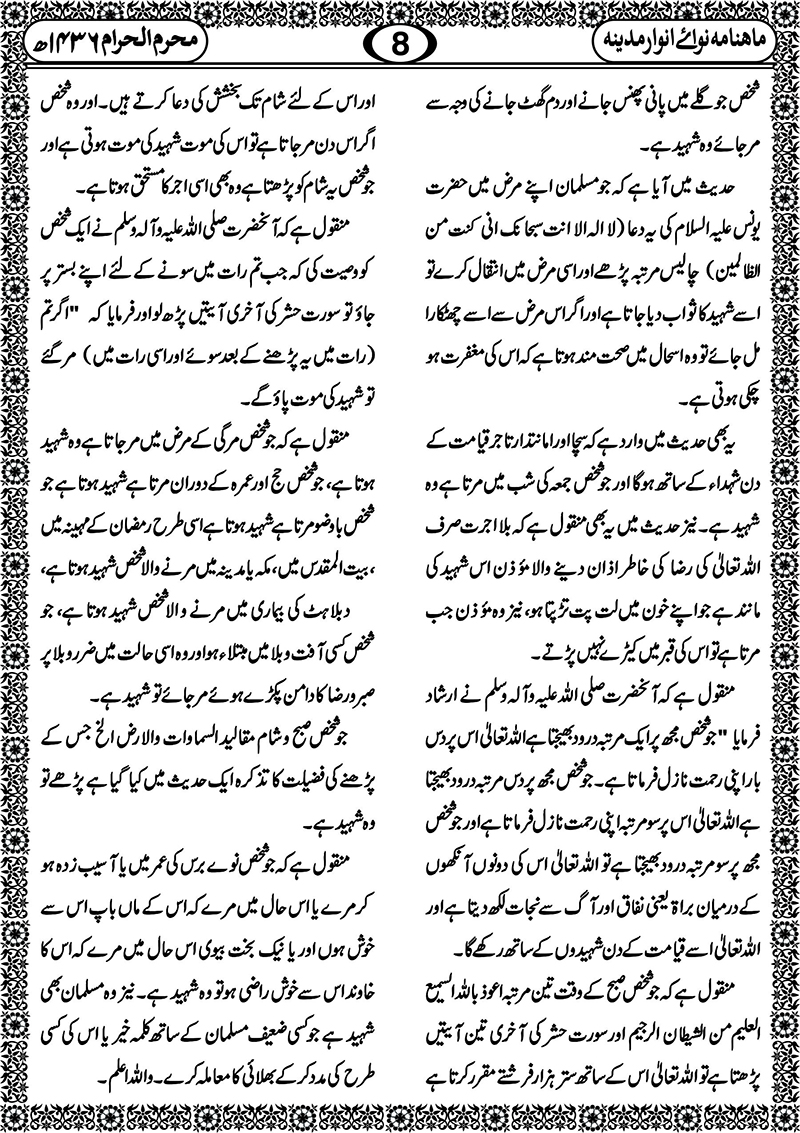 ماہنامہ نوائے انوار مدینہ
8
محرم الحرام ۱۴۳۶ھ
شخص جو گلے میں پانی پھنس جانے اور دم گھٹ جانے کی وجہ سے
مر جائے وہ شہید ہے۔
حدیث میں آیا ہے کہ جو مسلمان اپنے مرض میں حضرت
یونس علیہ السلام کی یہ دعا (لا الہ الا انت سبحانک انی کنت من
الظالمین) چالیس مرتبہ پڑھے اور اسی مرض میں انتقال کرے تو
اسے شہید کا ثواب دیا جاتا ہے اور اگر اس مرض سے اسے چھٹکارا
مل جائے تو وہ اسحال میں صحت مند ہوتا ہے کہ اس کی مغفرت ہو
چکی ہوتی ہے۔
یہ بھی حدیث میں وارد ہے کہ سچا اور امانتدار تاجر قیامت کے
دن شہداء کے ساتھ ہوگا اور جو شخص جمعہ کی شب میں مرتا ہے وہ
شہید ہے۔ نیز حدیث میں یہ بھی منقول ہے کہ بلا اجرت صرف
اللہ تعالیٰ کی رضا کی خاطر اذان دینے والا مؤذن اس شہید کی
مانند ہے جو اپنے خون میں لت پت تڑپتا ہو، نیز وہ مؤذن جب
مرتا ہے تو اس کی قبر میں کیڑے نہیں پڑتے۔
منقول ہے کہ آنحضرت صلی اللہ علیہ وآلہ وسلم نے ارشاد
فرمایا "جو شخص مجھ پر ایک مرتبہ درود بھیجتا ہے اللہ تعالیٰ اس پر دس
بار اپنی رحمت نازل فرماتا ہے۔ جو شخص مجھ پر دس مرتبہ درود بھیجتا
ہے اللہ تعالیٰ اس پر سو مرتبہ اپنی رحمت نازل فرماتا ہے اور جو شخص
مجھ پر سو مرتبہ درود بھیجتا ہے تو اللہ تعالیٰ اس کی دونوں آنکھوں
کے درمیان براۃ یعنی نفاق اور آگ سے نجات لکھ دیتا ہے اور
اللہ تعالیٰ اسے قیامت کے دن شہیدوں کے ساتھ رکھے گا۔
منقول ہے کہ جو شخص صبح کے وقت تین مرتبہ اعوذ باللہ السمیع
العلیم من الشیطان الرجیم اور سورت حشر کی آخری تین آیتیں
پڑھتا ہے تو اللہ تعالیٰ اس کے ساتھ ستر ہزار فرشتے مقرر کرتا ہے
اور اس کے لئے شام تک بخشش کی دعا کرتے ہیں۔ اور وہ شخص
اگر اس دن مر جاتا ہے تو اس کی موت شہید کی موت ہوتی ہے اور
جو شخص یہ شام کو پڑھتا ہے وہ بھی اسی اجر کا مستحق ہوتا ہے۔
منقول ہے کہ آنحضرت صلی اللہ علیہ وآلہ وسلم نے ایک شخص
کو وصیت کی کہ جب تم رات میں سونے کے لئے اپنے بستر پر
جاؤ تو سورت حشر کی آخری آیتیں پڑھ لو اور فرمایا کہ "اگر تم
(رات میں یہ پڑھنے کے بعد سوئے اور اسی رات میں) مر گئے
تو شہید کی موت پاؤ گے۔
منقول ہے کہ جو شخص مرگی کے مرض میں مر جاتا ہے وہ شہید
ہوتا ہے، جو شخص حج اور عمرہ کے دوران مرتا ہے شہید ہوتا ہے جو
شخص باوضو مرتا ہے شہید ہوتا ہے اسی طرح رمضان کے مہینہ میں
،بیت المقدس میں، مکہ یا مدینہ میں مرنے والا شخص شہید ہوتا ہے،
دبلاہٹ کی بیماری میں مرنے والا شخص شہید ہوتا ہے، جو
شخص کسی آفت و بلا میں مبتلاء ہو اور وہ اسی حالت میں ضرر و بلا پر
صبر و رضا کا دامن پکڑے ہوئے مر جائے تو شہید ہے۔
جو شخص صبح و شام مقالید السماوات والارض الخ جس کے
پڑھنے کی فضیلت کا تذکرہ ایک حدیث میں کیا گیا ہے پڑھے تو
وہ شہید ہے۔
منقول ہے کہ جو شخص نوے برس کی عمر میں یا آسیب زدہ ہو
کر مرے یا اس حال میں مرے کہ اس کے ماں باپ اس سے
خوش ہوں اور یا نیک بخت بیوی اس حال میں مرے کہ اس کا
خاوند اس سے خوش راضی ہو تو وہ شہید ہے۔ نیز وہ مسلمان بھی
شہید ہے جو کسی ضعیف مسلمان کے ساتھ کلمہ خیر یا اس کی کسی
طرح کی مدد کر کے بھلائی کا معاملہ کرے۔ واللہ اعلم۔